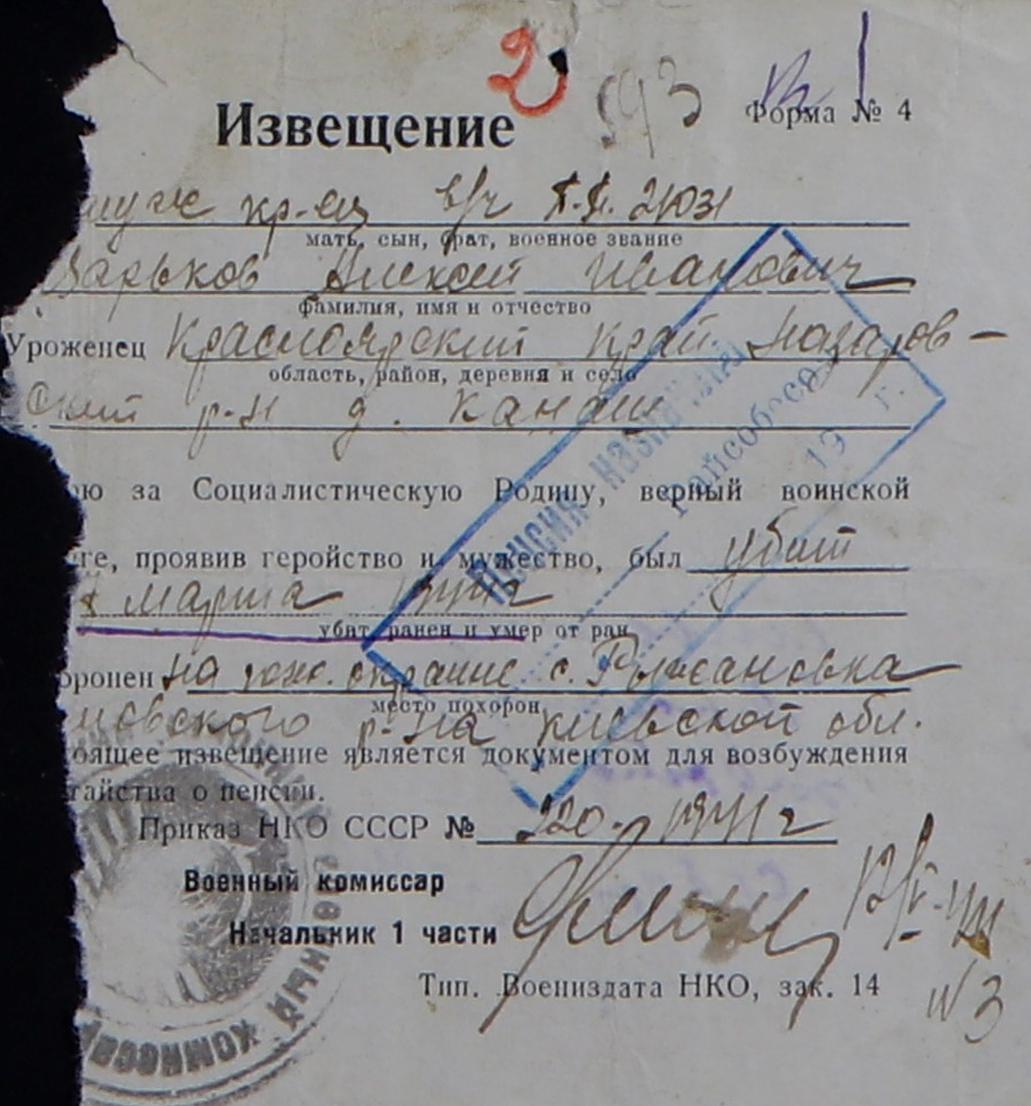 2 593
Форма № 4
Извещение
муж кр-ец в/ч п.п. 24031
мать, сын, брат, военное звание
Зарьков Алексей Иванович
фамилия, имя и отчество
Уроженец Красноярский край Назаров-
область, район, деревня и село
ский р-н д. Канаш
ою за Социалистическую Родину, верный воинской
ге, проявив геройство и мужество, был убит
марта 1944 г
убит, ранен и умер от ран
оронен на южн. окраине с. Рыжановка
место похорон
овского р-на Киевской обл.
оящее извещение является документом для возбуждения
тайства о пенсии.
Приказ НКО СССР № 220-1941 г
Военный комиссар
Начальник 1 части
12/V-44
Тип. Воениздата НКО, зак. 14
№3
Пенсия назначена
райсобесом
19 г.
военный комиссар